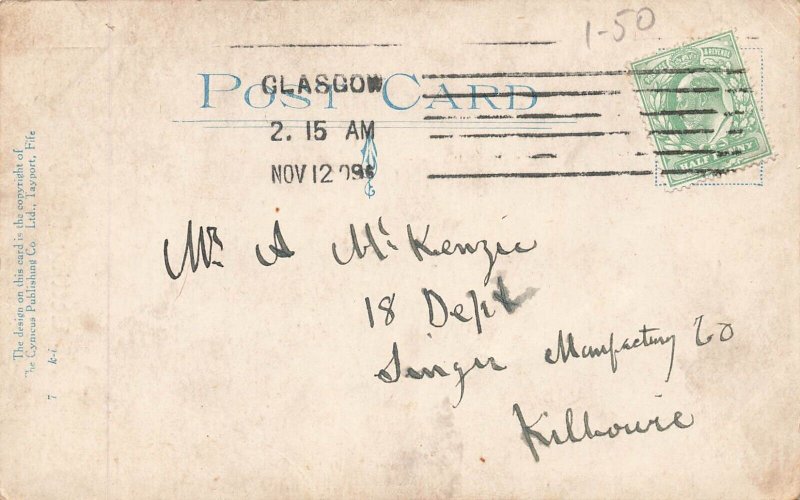 1-50
POST CARD
GLASGOW
2. 15 AM
NOV 12 09
& REVENUE
HALF PENNY
Mr. A McKenzie
18 Dept
Singer Manfactury Co
Kilbowie
The design on this card is the copyright of
The Cynicus Publishing Co. Ltd., Tayport, Fife
7 k-i